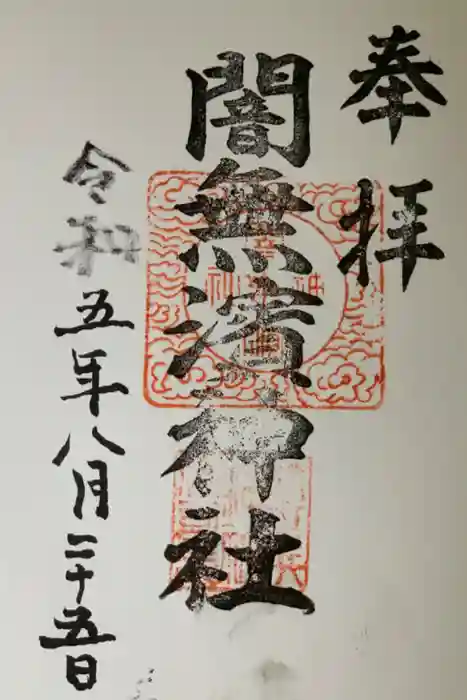 奉拝
闇無濱神社
令和五年八月二十五日